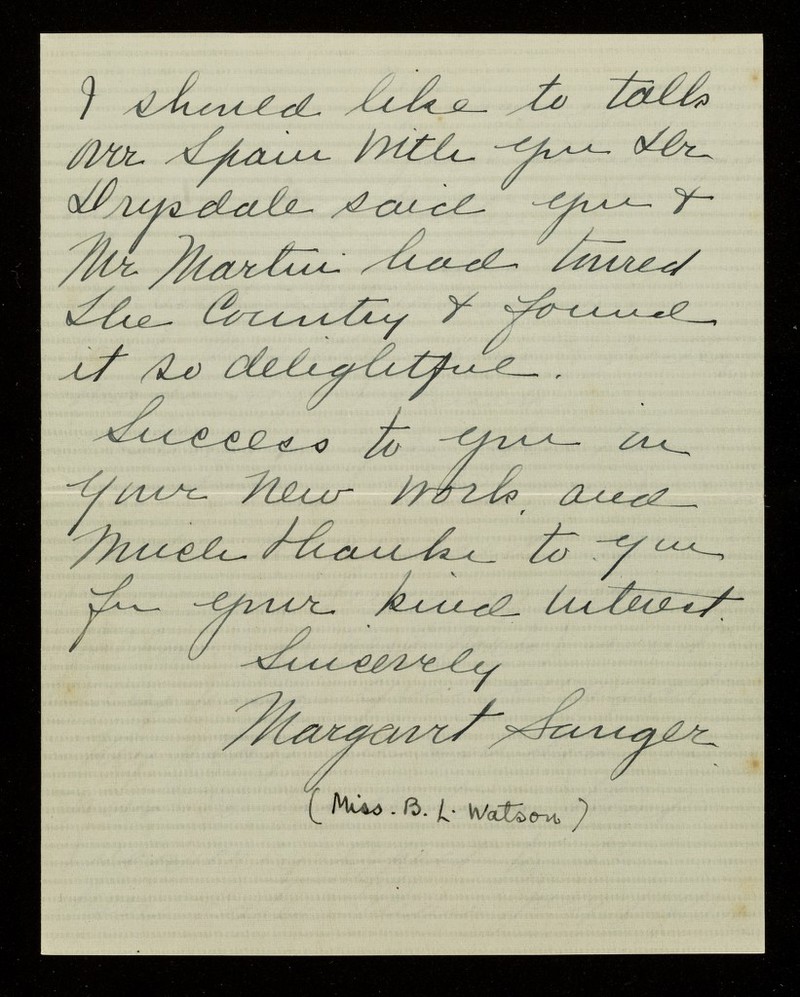 I should like to talk
over Spain with you Dr
Drysdale said you &
Mr Martin had toured
the Country & found
it so delightful.
Success to you in
your new work, and
much thanks to you
for your kind interest.
Sincerely
Margaret Sanger
(Miss. B. L. Watson)